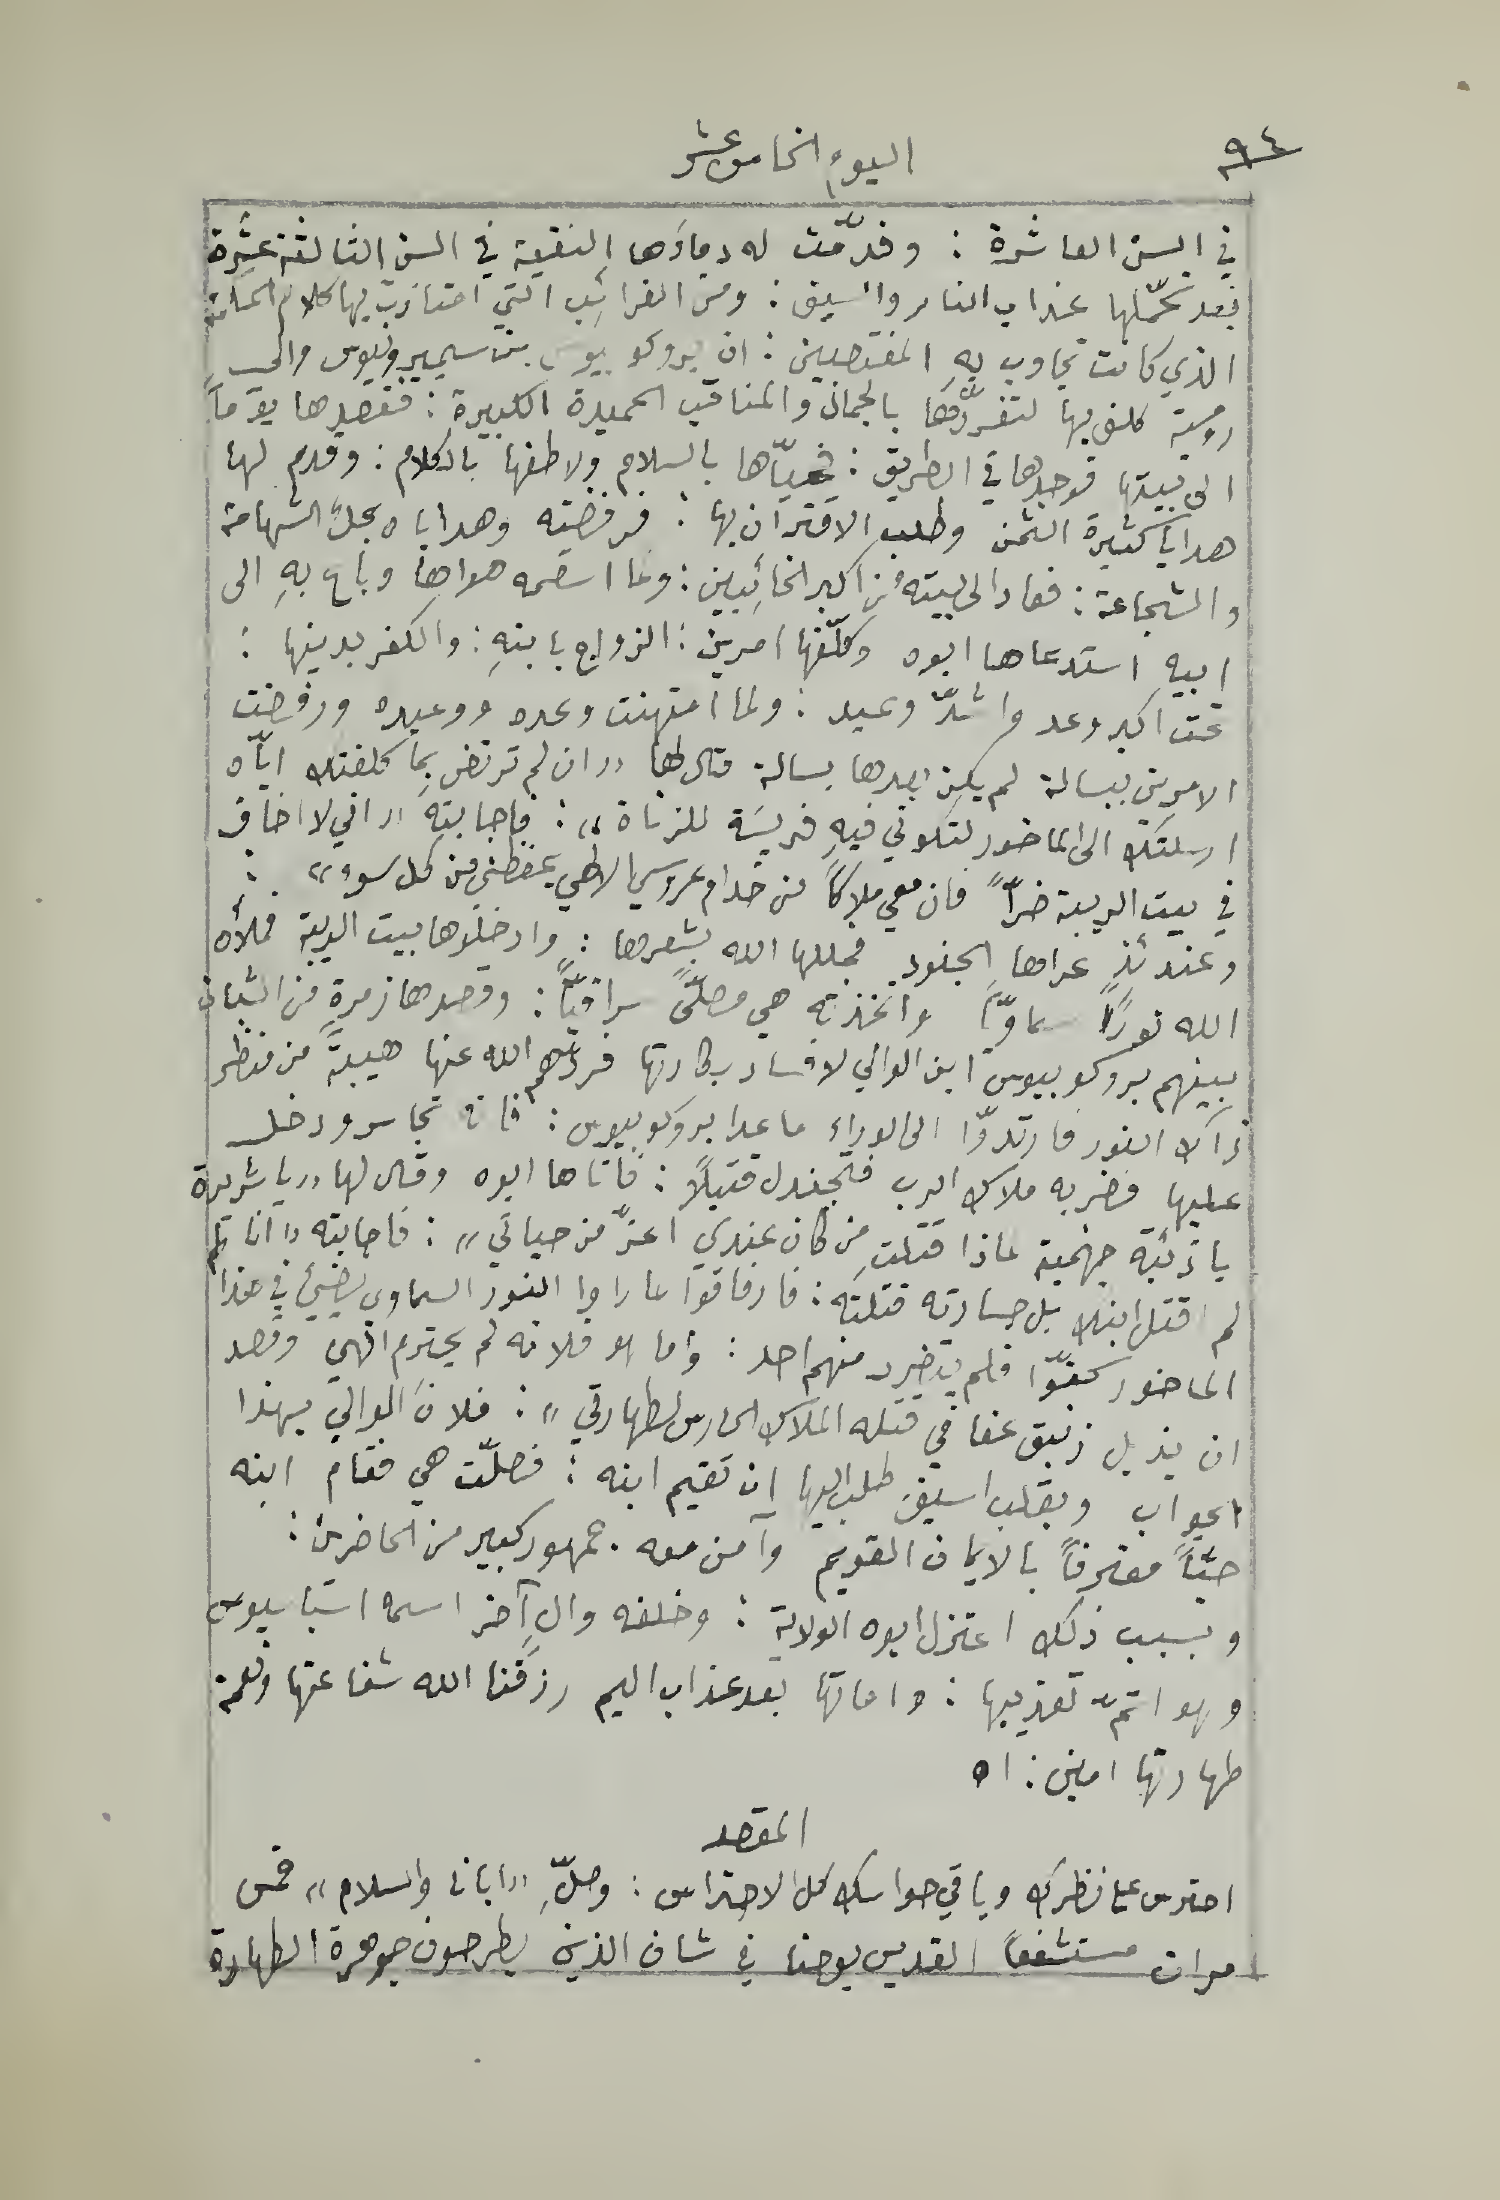 ٩٤
اليوم الخامس عشر
في السن العاشرة : وقدمّت له دماؤها النقية في السن الثالثة عشرة
بعد تحمّلها عذاب النار والسيف : ومن الغرائب التي امتازت بها كلام الحكمة
الذي كانت تجاوب بهِ المغتصبين : ان بروكوبيوس بن سيمبرونيوس والي
رومية كلف بها لتفردّها بالجمال والمناقب الحميدة الكبيرة : فقصدها يومًا
الى بيتها فوجدها في الطريق : فحيّاها بالسلام ولاطفها بالكلام : وقدم لها
هدايا كثيرة الثمن وطلب الاقتران بها : فرفضته وهداياه بكل الشهامة
والشجاعة : فعاد الى بيته من اكبر الخائبين : ولما اسقمه هواها وباح بهِ الى
ابيهِ استدعاها ابوه وكلّفها امرين : الزواج بابنهِ : والكفر بدينها :
تحت اكبر وعد واشدّ وعيد : ولما امتهنت وعده ووعيده ورفضت
الامرين ببسالة لم يكن بعدها بسالة قال لها «ان لم ترتض بما كلفتك ايّاه
ارسلتك الى الماخور لتكوني فيهِ فريسة للزناة» : فاجابتهِ «اني لا اخاف
في بيت الريبة ضرًّا فان معي ملاكًا من خدام عروسي الالهي يحفظني من كل سوء» :
وعندئذٍ عراها الجنود فجللها الله بشعرها : وادخلوها بيت الريبة فملأه
الله نورًا سماويًّا واتخذته هي مصلًّى سراقبًّا : وقصدها زمرة من الشبان
بينهم بروكوبيوس ابن الوالي لافساد بكارتها فردّهم الله عنها هيبةً من منظر
ذاك النور فارتدوّا الى الوراء ما عدا بروكوبيوس : فانه تجاسر ودخل
عليها فضربه ملاك الرب فتجندل قتيلًا : فاتاها ابوه وقال لها «يا شريرة
يا ذئبة جهنمية لماذا قتلتِ من كان عندي اعزّ من حياتي» : فاجابته «انا
لم اقتل ابنك بل جسارته قتلته : فارفاقه لما راوا النور السماوي يضيئ في هذا
الماخور كفوّا فلم يتضرر منهم احد : واما هو فلانه لم يحترم الهي وقصد
ان يذبل زنبق عفافي قتله الملاك الحارس لطهارتي» : فلان الوالي بهذا
الجواب وبقلب اسيف طلب اليها ان تقيم ابنه : فصلّت هي فقام ابنه
حيًّا معترفًا بالايمان القويم وآمن معه جمهور كبير من الحاضرين :
وبسبب ذلك اعتزل ابوه الولاية : وخلفه والٍ آخر اسمه اسباسيوس
وهو اتمّ تعذيبها : واماتها بعد عذاب اليم رزقنا الله شفاعتها ونعمة
طهارتها امين : اه
المقصد
احترس على نظرك وباقي حواسك كل الاحتراس : وصلِّ «ابانا والسلام» خمس
مرات مستشفعًا القديس يوحنا في شان الذين يطرحون جوهرة الطهارة